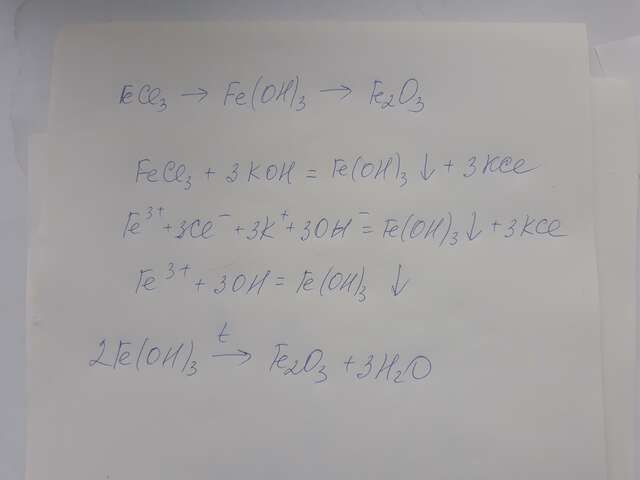 FeCl₃ → Fe(OH)₃ → Fe₂O₃
FeCl₃ + 3KOH = Fe(OH)₃ ↓ + 3KCl
Fe³⁺ + 3Cl⁻ + 3K⁺ + 3OH⁻ = Fe(OH)₃ ↓ + 3KCl
Fe³⁺ + 3OH = Fe(OH)₃ ↓
2Fe(OH)₃ →ᵗ Fe₂O₃ + 3H₂O